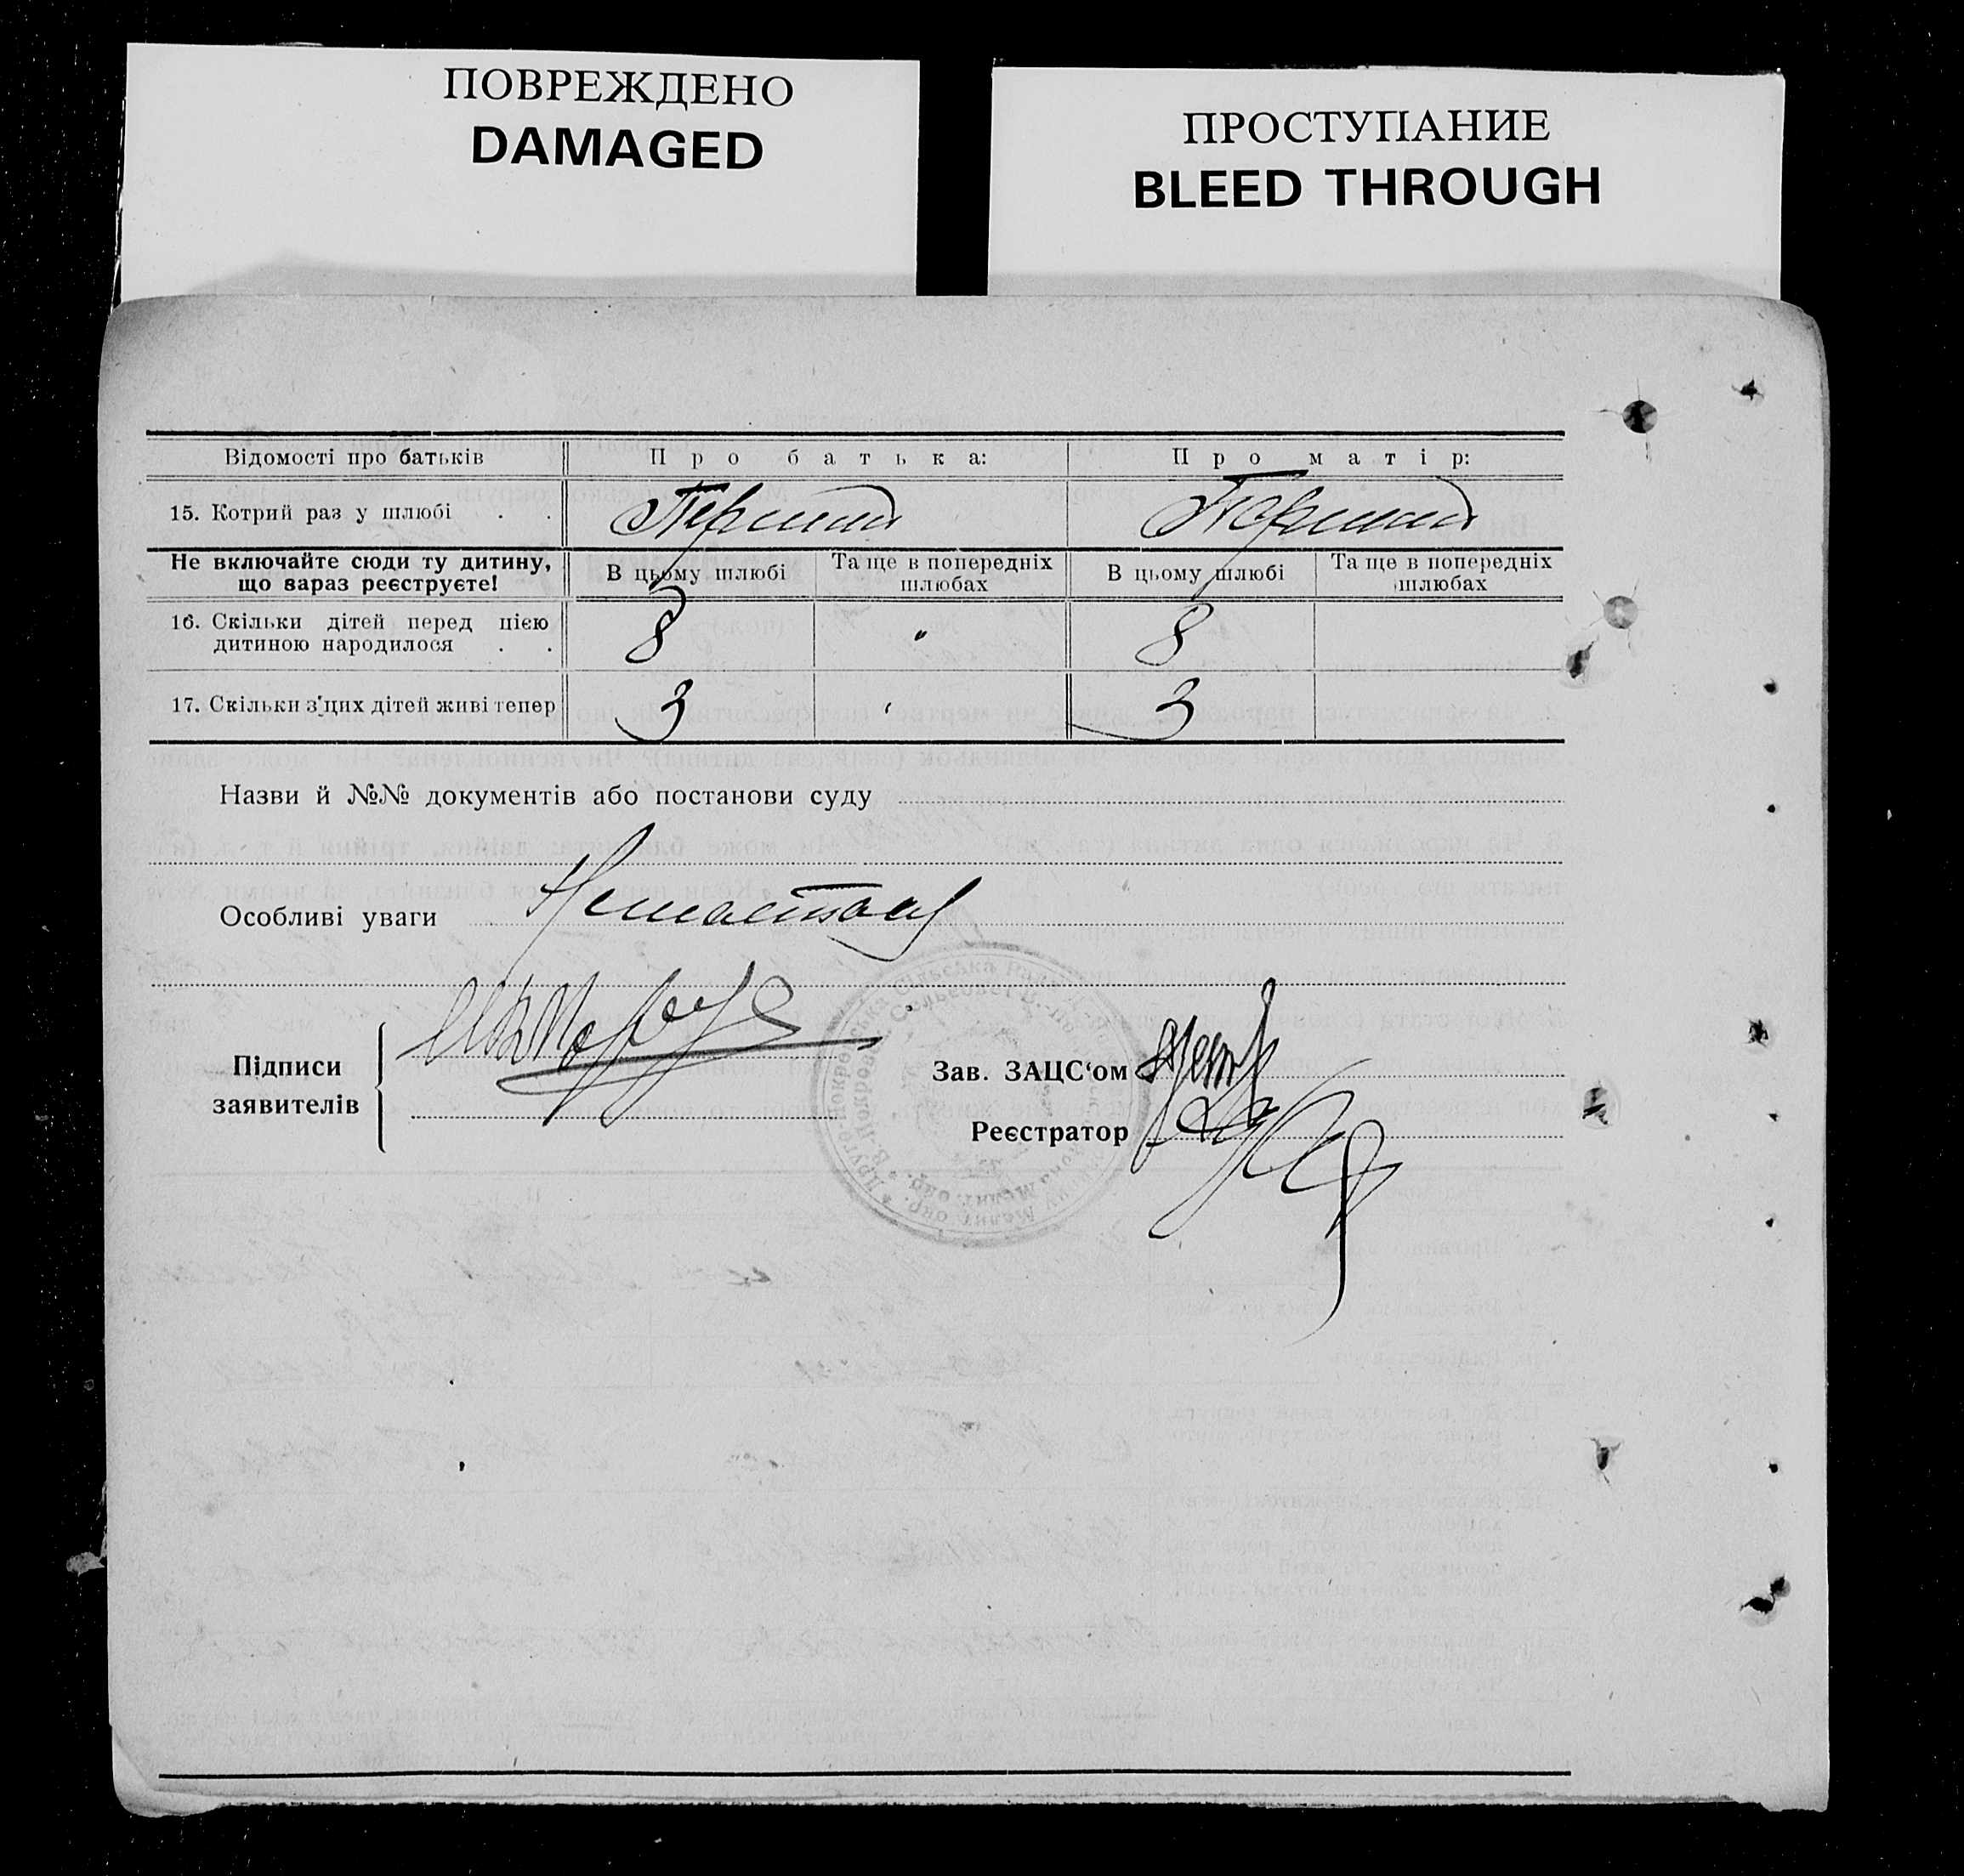 ПОВРЕЖДЕНО
DAMAGED
ПРОСТУПАНИЕ
BLEED THROUGH
Відомості про батьків
Про батька:
Про матір:
15. Котрий раз у шлюбі . .
Перший
Перший
Не включайте сюди ту дитину,
що вараз реєструєте!
В цьому шлюбі
Та ще в попередніх
шлюбах
В цьому шлюбі
Та ще в попередніх
шлюбах
16. Скільки дітей перед цією
дитиною народилося . .
8
"
8
17. Скільки з цих дітей живі тепер
3
3
Назви й №№ документів або постанови суду
Особливі уваги
Підписи
заявителів
Зав. ЗАЦС‘ом
Реєстратор